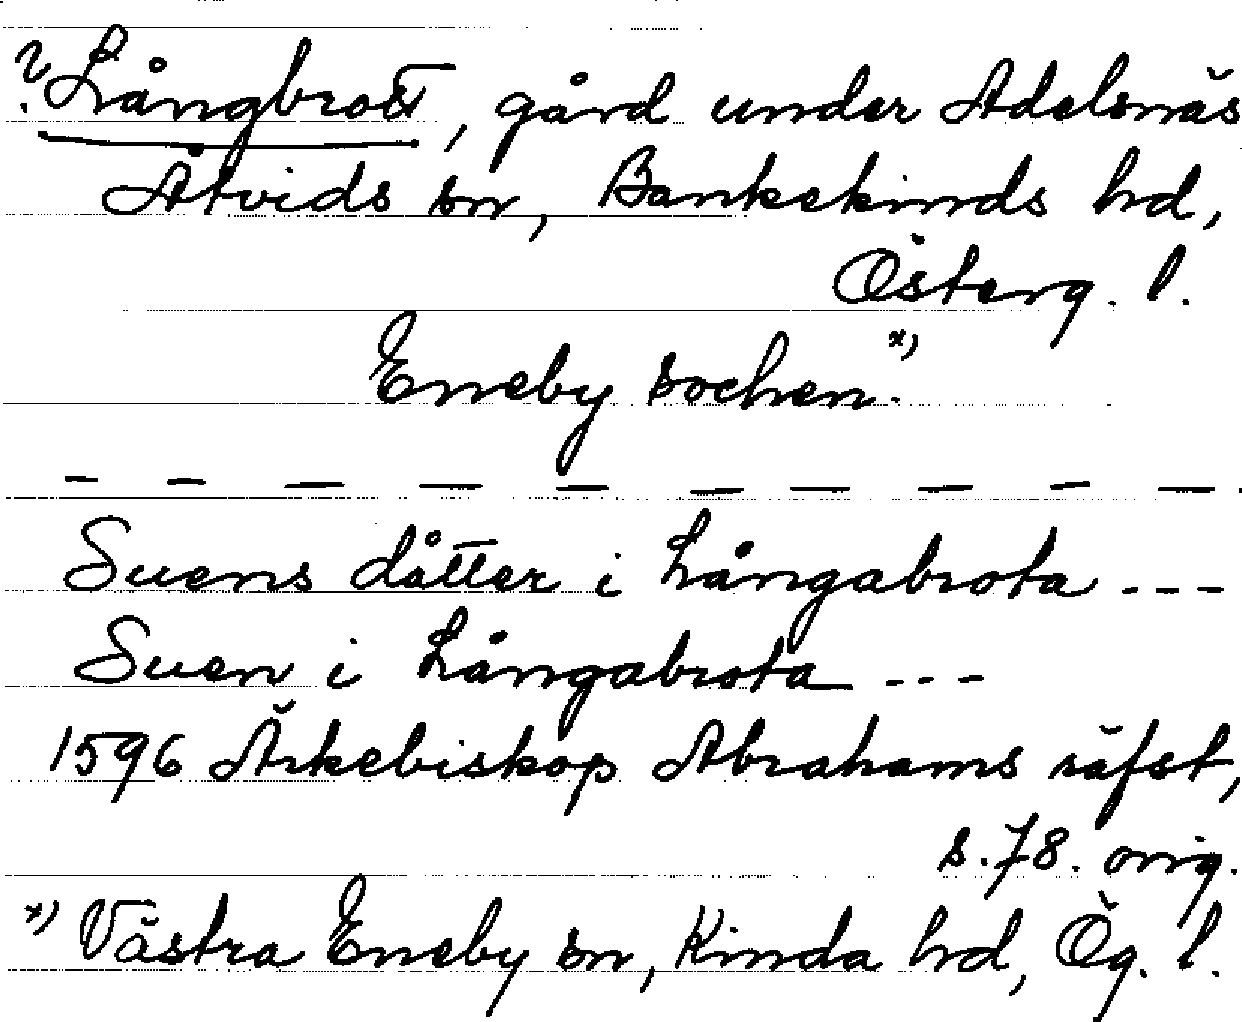 ? Långbrott, gård under Adelsnäs
Åtvids sn, Bankekinds hd,
Österg. l.
Eneby sochen.*)
– – – – – – – – – –
Suens dåtter i Långabrota ---
Suen i Långabrota ---
1596 Ärkebiskop Abrahams räfst,
s. 78. orig.
*) Västra Eneby sn, Kinda hd, Ög. l.